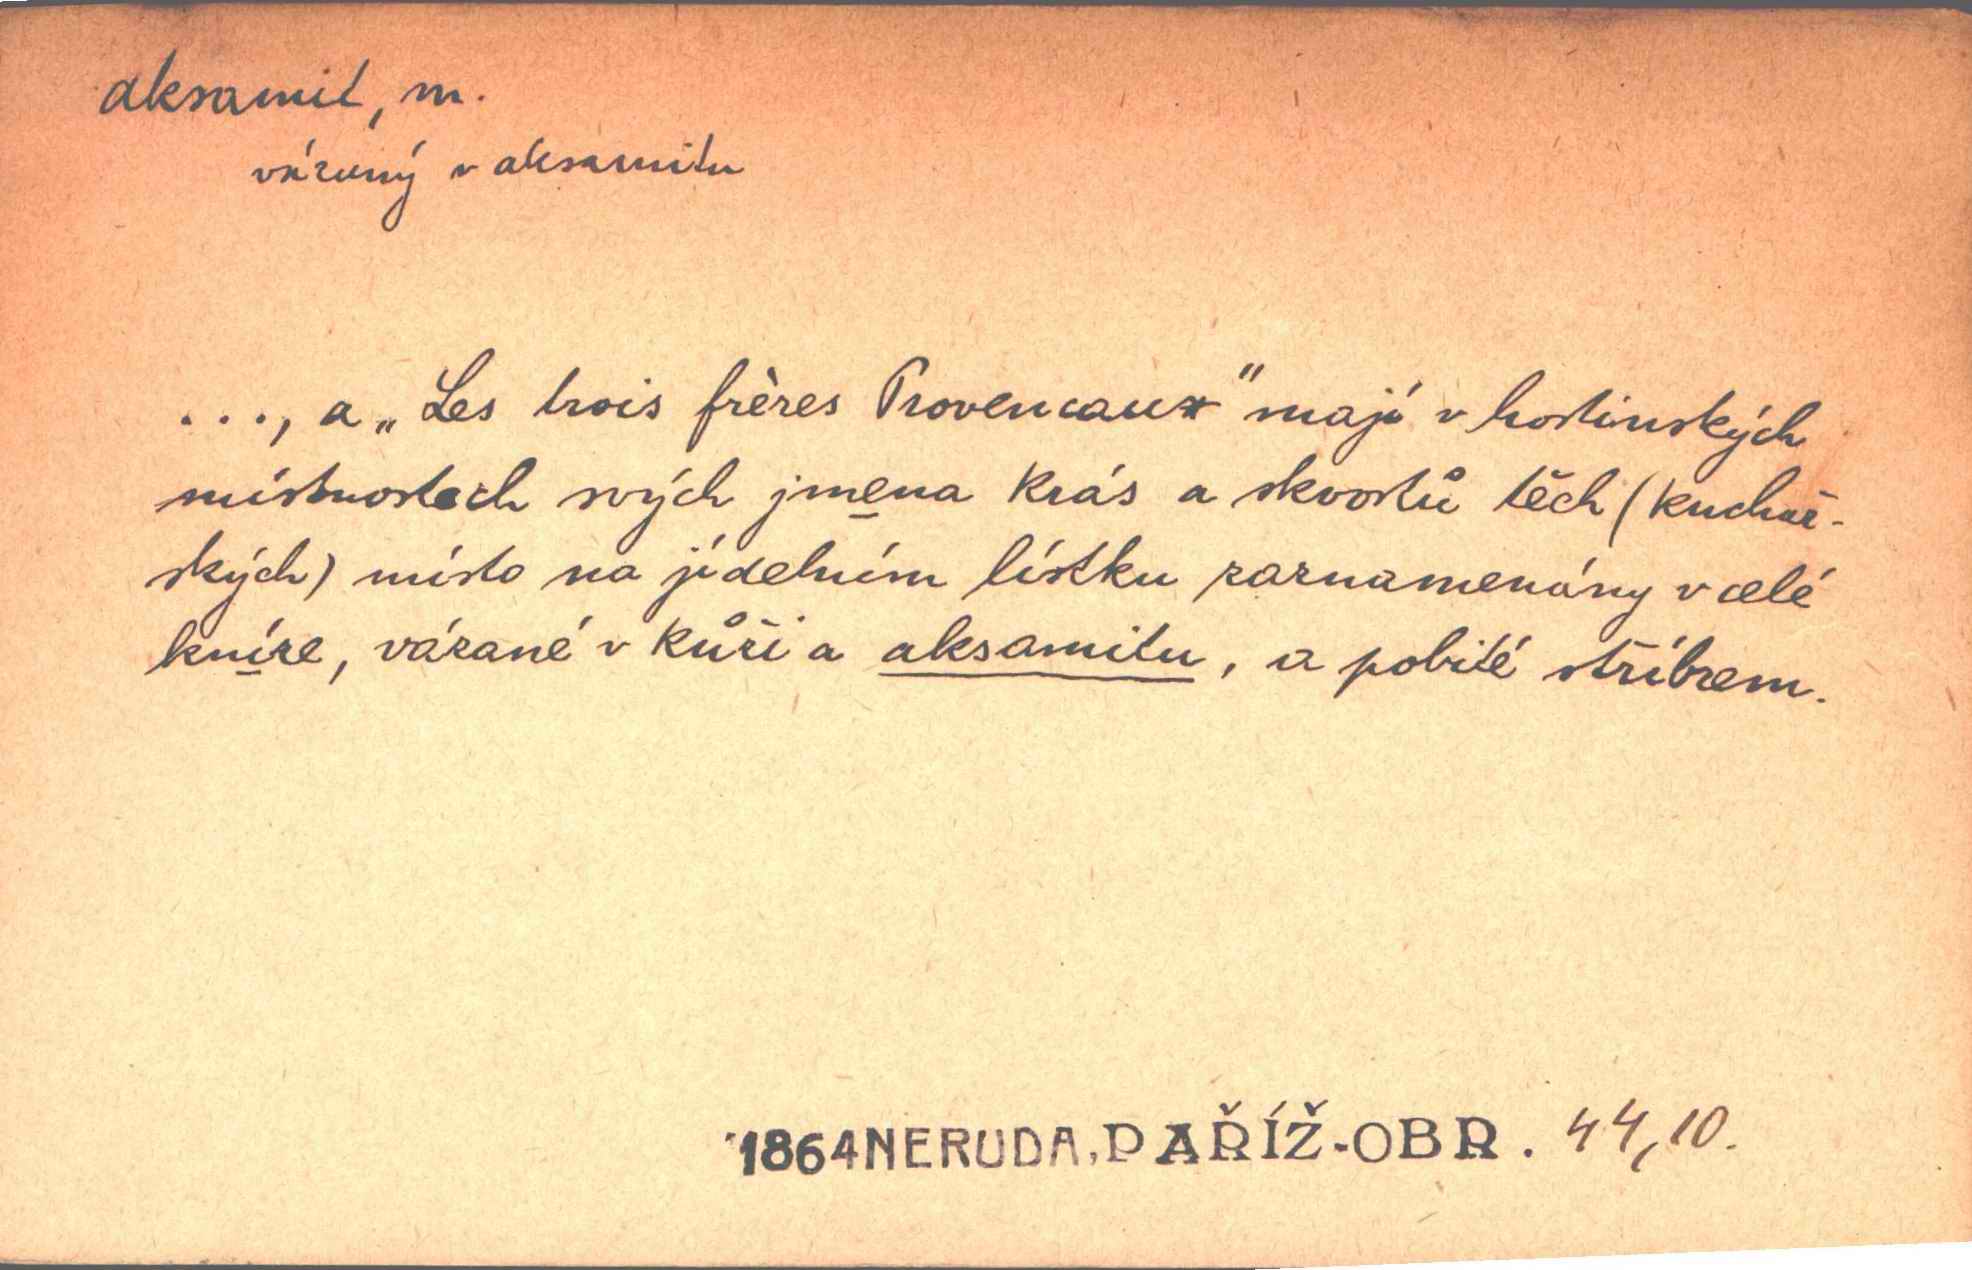 aksamit, m.
vázaný v aksamitu
..., a „Les trois frères Provencaux" mají v hostinských
místnostech svých jmena krás a skvostů těch (kuchař-
ských) místo na jídelním lístku zaznamenány v celé
kníze, vázané v kůži a aksamitu, a pobité stříbrem.
1864 NERUDA, PAŘÍŽ-OBR. 44,10.